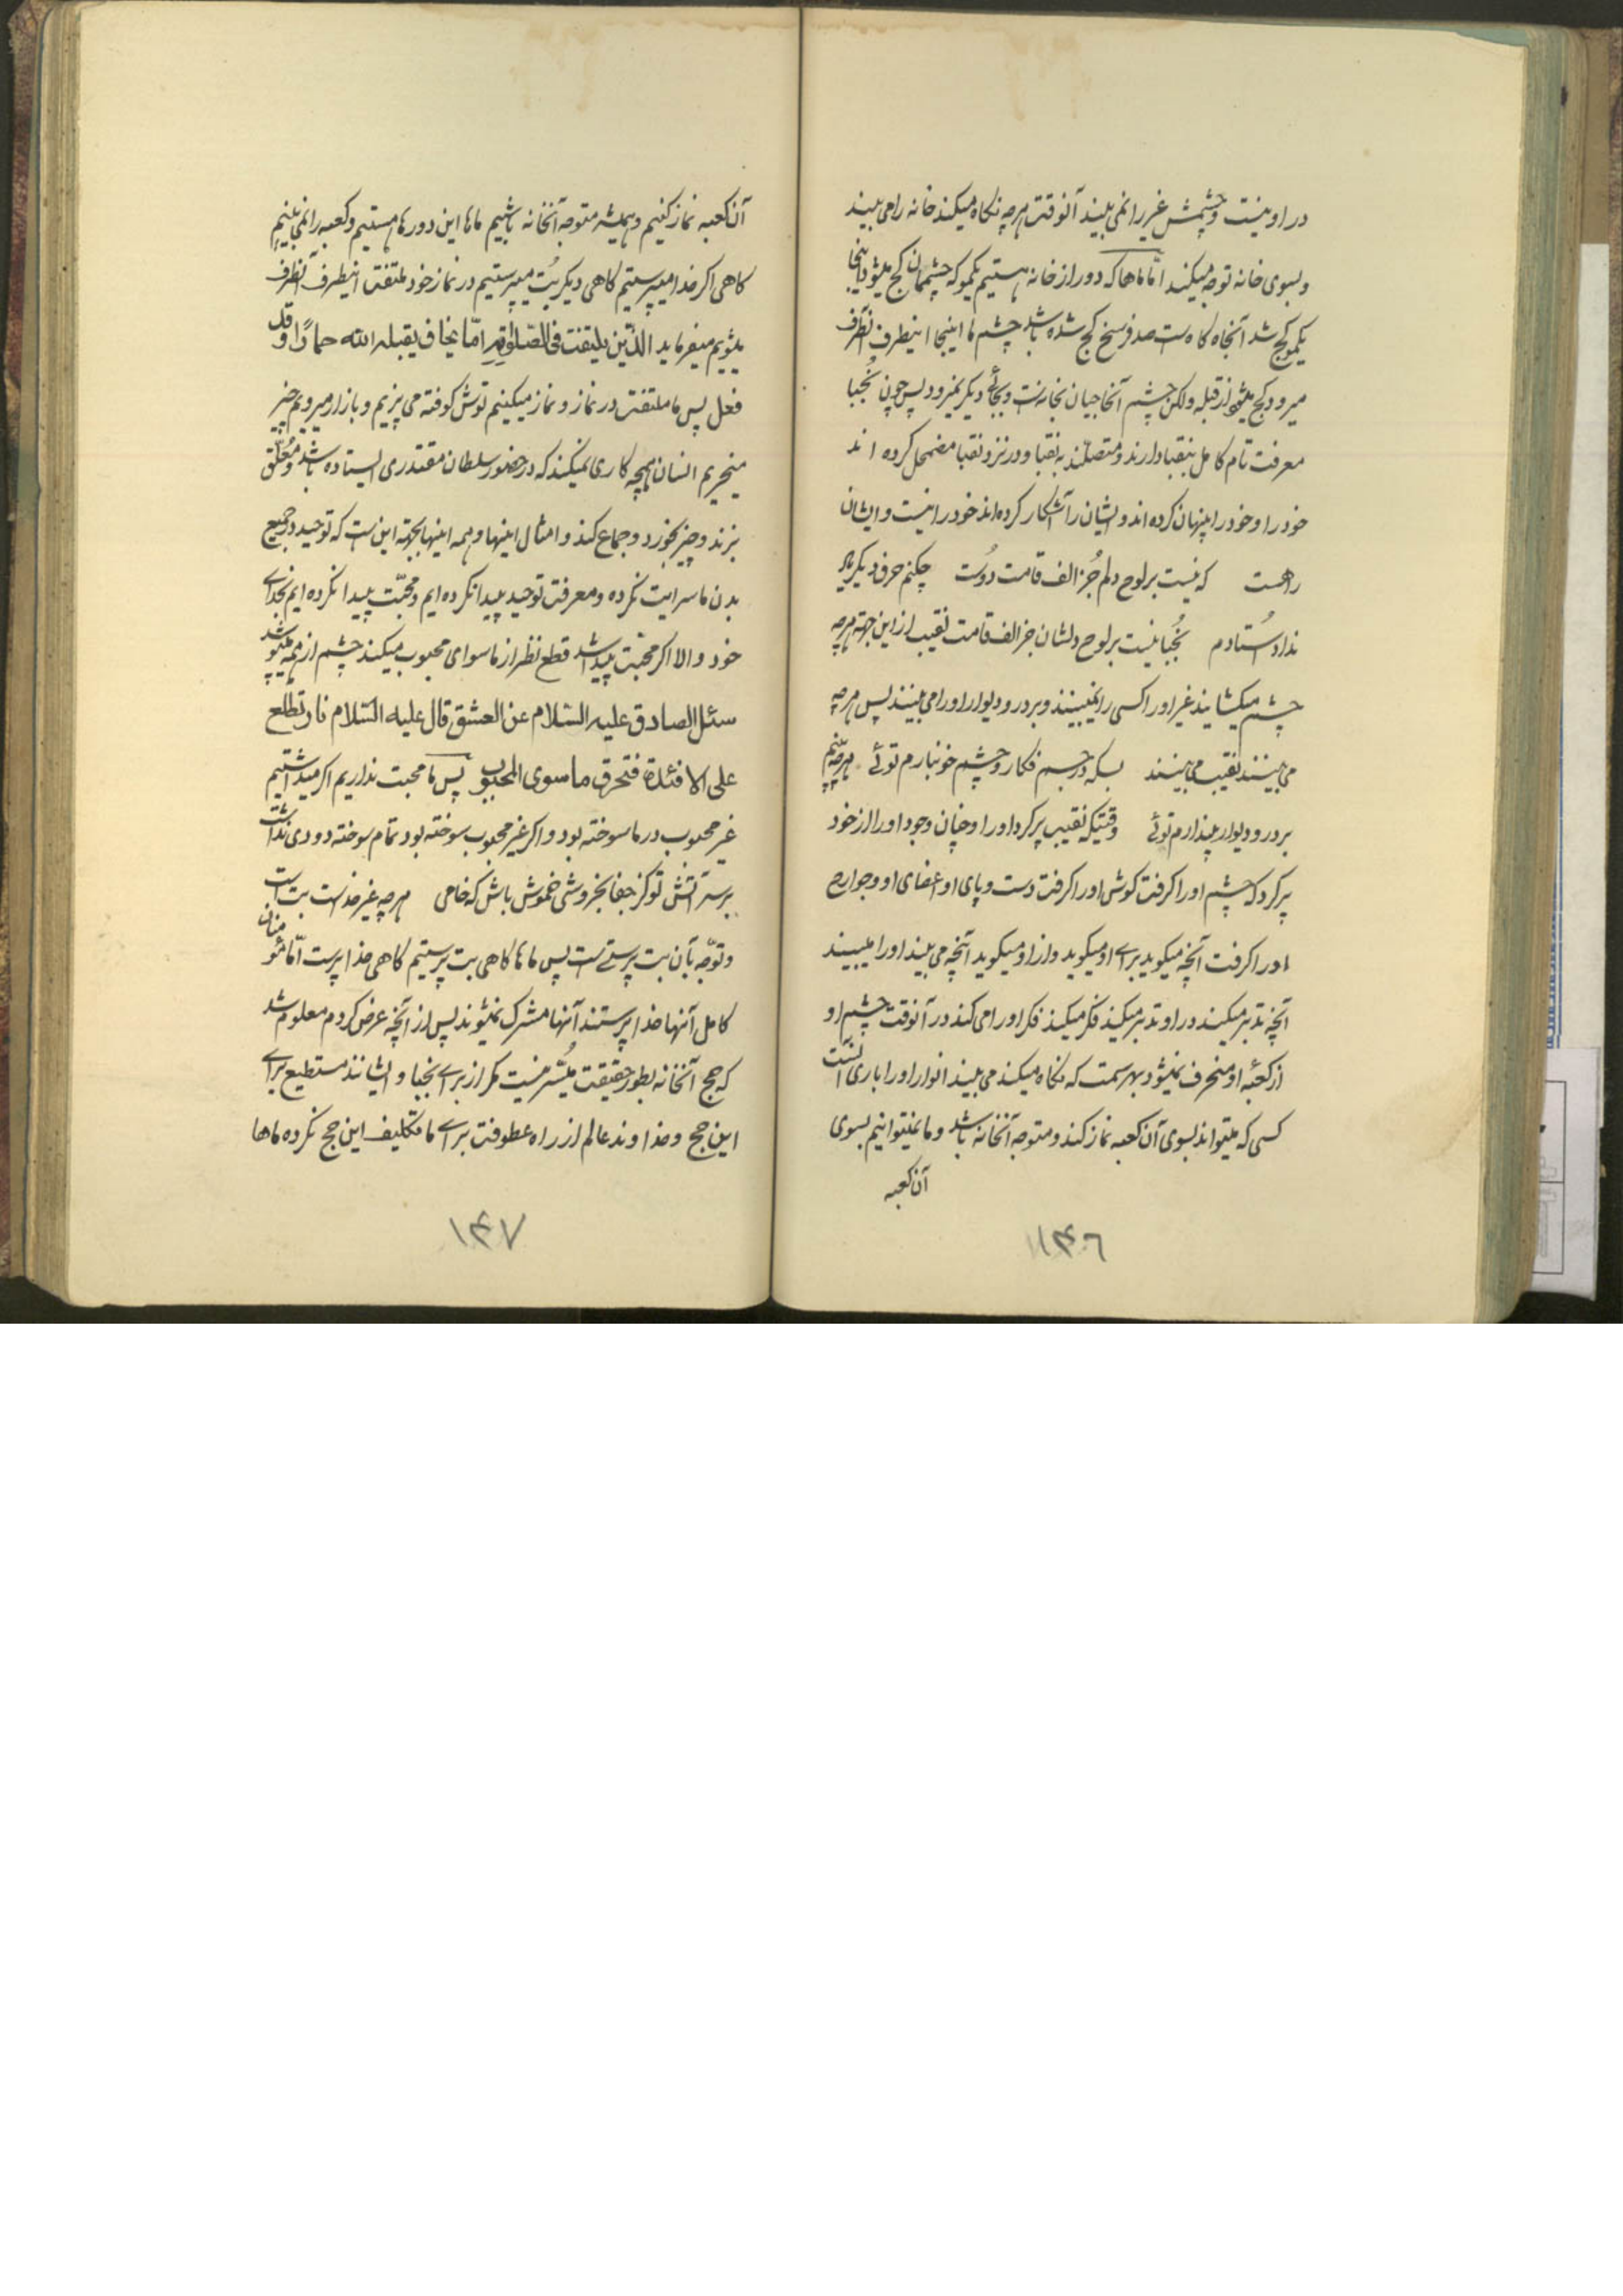 در او نیست و چشمش غیر را نمی بیند آنوقت هرچه نکاه میکند خانه را می بیند
و بسوی خانه توجه میکند امّا ماها که دور از خانه هستیم یکمو که چشممان کج میشود اینجا
یکمو کج شد آنجا کاه ست صد فرسخ کج شده باشد چشم ما اینجا اینطرف آنطرف
میرود کج میشود از قبله ولکن چشم آنجاییان بخانه ست و بجائی دیکر نمیرود پس چون نُجبا
معرفت تام کامل بنقبا دارند و متصلند به نقبا و در نزد نقبا مضمحل کرده اند
خود را و خود را پنهان کرده اند و ایشان را آشکار کرده اند خود را نیست و ایشان
را هست که نیست بر لوح دلم جُز الف قامت دوُست چکنم حرف دیکر یاد
نداد اُستادم نُجبا نیست بر لوح دلشان جز الف قامت نقیب از این جهة هرچه
چشم میکشایند غیر او را کسی را نمیبینند و بر در و دیوار او را می بینند پس هرچه
می بینند نقیب می بینند بسکه در جسم فکار و چشم خونبارم توئی هرچه بینم
بر در و دیوار پندارم توئی وقتیکه نقیب پر کرد او را و خان وجود او را از خود
پر کرد که چشم او را کرفت کوش او را کرفت دست و پای او اعضای او و جوارح
او را کرفت آنچه میکوید برای او میکوید و از او میکوید آنچه می بیند او را میبیند
آنچه تدبر میکند در او تدبر میکند فکر میکند فکر او را می کند در آنوقت چشم او
از کعبه او منحرف نمیشود بهر سمت که نکاه میکند می بیند انوار او را باری آنست
کسی که میتواند بسوی آن کعبه نماز کند و متوجه آنخانه باشد و ما نمیتوانیم بسوی
آن کعبه
۱۴۶
آن کعبه نماز کنیم و همیشه متوجه آنخانه باشیم ماها این دورها هستیم و کعبه را نمی بینیم
کاهی اکر خدا میپرستیم کاهی دیکر بُت میپرستیم در نماز خود ملتفت اینطرف آنطرف
میشویم میفرماید الذین یلتفت فی الصّلوة امّا یخاف یقبله الله حماراً و قد
فعل پس ما ملتفت در نماز و نماز میکنیم توش کوفته می پزیم و بازار میرویم چیز
میخریم انسان هیچه کاری نمیکند که در حضور سلطان مقتدری ایستاده باشد و مُعلّق
بزند و چیز بخورد و جماع کند و امثال اینها و همه اینها بجهة این ست که توحید در جمیع
بدن ما سرایت نکرده و معرفت توحید پیدا نکرده ایم و محبّت پیدا نکرده ایم بخدای
خود والا اکر محبّت پیدا شد قطع نظر از ماسوای محبوب میکند چشم از همه میپوشد
سئل الصادق علیه السّلام عن العشق قال علیه السّلام نار تطلع
علی الافئدة فتحرق ما سوی المحبوب پس ما محبت نداریم اکر میداشتیم
غیر محبوب در ما سوخته بود و اکر غیر محبوب سوخته بود تمام سوخته دودی نداشت
بر سر آتش تو کز جفا بخروشی خموش باش که خامی هرچه غیر خداست بت است
و توجّه بآن بت پرستی ست پس ماها کاهی بت پرستیم کاهی خدا پرست امّا مؤمنان
کامل آنها خدا پرستند آنها مشرک نمیشوند پس از آنچه عرض کردم معلوم شد
که حج آنخانه بطور حقیقت میُسّر نیست مکر از برای نجبا و ایشانند مستطیع برای
این حج و خداوند عالم از راه عطوفت برای ما تکلیف این حج نکرده ماها
۱۴۷